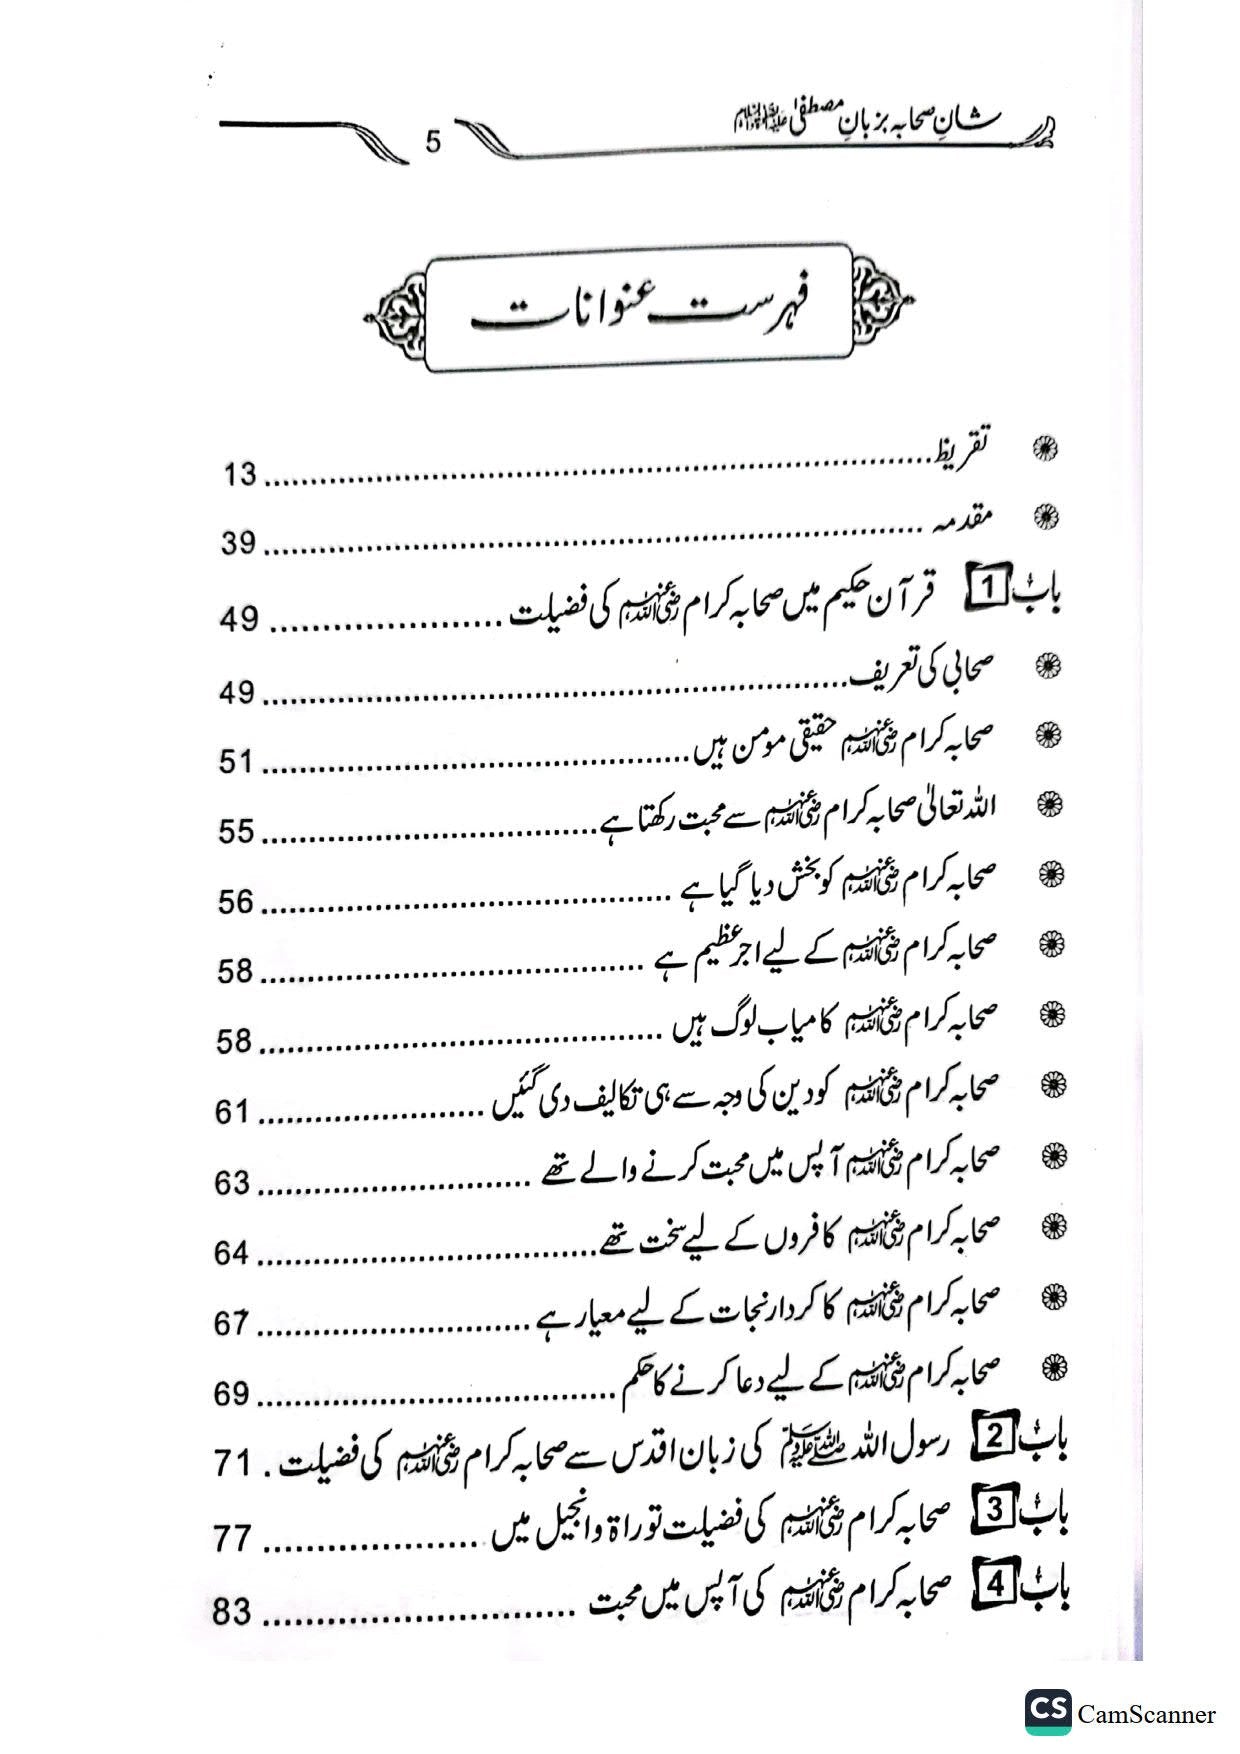 شانِ صحابہ بزبانِ مصطفیٰ ﷺ
5
فہرست عنوانات
تقریظ ........ 13
مقدمہ ........ 39
باب 1 قرآن حکیم میں صحابہ کرام رضی اللہ عنہم کی فضیلت ........ 49
صحابی کی تعریف ........ 49
صحابہ کرام رضی اللہ عنہم حقیقی مومن ہیں ........ 51
اللہ تعالیٰ صحابہ کرام رضی اللہ عنہم سے محبت رکھتا ہے ........ 55
صحابہ کرام رضی اللہ عنہم کو بخش دیا گیا ہے ........ 56
صحابہ کرام رضی اللہ عنہم کے لیے اجر عظیم ہے ........ 58
صحابہ کرام رضی اللہ عنہم کامیاب لوگ ہیں ........ 58
صحابہ کرام رضی اللہ عنہم کو دین کی وجہ سے ہی تکالیف دی گئیں ........ 61
صحابہ کرام رضی اللہ عنہم آپس میں محبت کرنے والے تھے ........ 63
صحابہ کرام رضی اللہ عنہم کافروں کے لیے سخت تھے ........ 64
صحابہ کرام رضی اللہ عنہم کا کردار نجات کے لیے معیار ہے ........ 67
صحابہ کرام رضی اللہ عنہم کے لیے دعا کرنے کا حکم ........ 69
باب 2 رسول اللہ ﷺ کی زبان اقدس سے صحابہ کرام رضی اللہ عنہم کی فضیلت . 71
باب 3 صحابہ کرام رضی اللہ عنہم کی فضیلت توراۃ وانجیل میں ........ 77
باب 4 صحابہ کرام رضی اللہ عنہم کی آپس میں محبت ........ 83
CS CamScanner